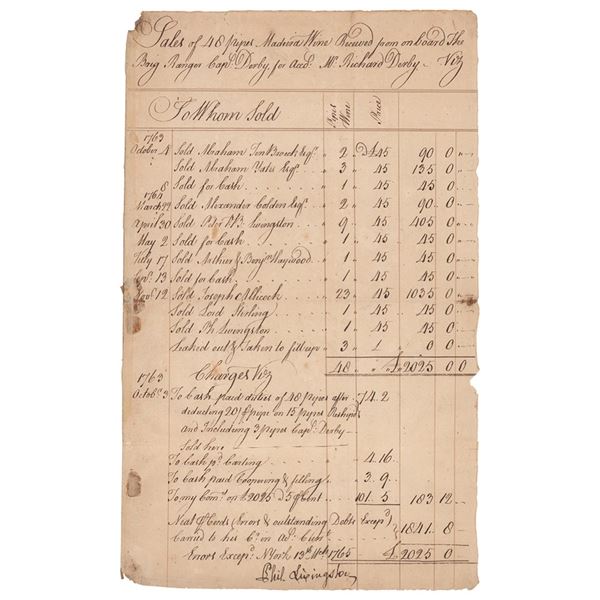 Sales of 48 pipes Madeira Wine Received from on board The
Brig Ranger Capt. Derby, for Acct. Mr. Richard Derby - Vizt
To Whom Sold Pipes Wine Price
1763
October 4 Sold Abraham Ten Broeck Esqr. " 2 " £45 90 0
Sold Abraham Yates Esqr. " 3 " 45 135 0
8 Sold for Cash " 1 " 45 45 0
1764
March 29 Sold Alexander Colden Esqr. " 2 " 45 90 0
April 30 Sold Livingston " 9 " 45 405 0
May 2 Sold for Cash " 1 " 45 45 0
July 17 Sold Arthur & Benjn. Haywood " 1 " 45 45 0
13 Sold for Cash " 1 " 45 45 0
Novr. 12 Sold Joseph Allicock " 23 " 45 1035 0
Sold Lord Sterling " 1 " 45 45 0
Sold Ph. Livingston " 1 " 45 45 0
Leaked out & Taken to fill up " 3 0
48 " " £ 2025 0 0
1763 Charges Vizt
Octobr. 3 To Cash paid duties of 48 pipes after 74.2
deducting 20/ pipe on 15 pipes
and Including 3 pipes Capt. Derby
Sold here
To Cash pd. Carting 4.16
To Cash paid Coopering & filling 3.9
To my Comn. on £2025 5 Cent 101.5 183 12
Neat (Errors & outstanding Debts Excepd.)
Carried to his on Acct. Curt. 1841 8
Errors Excepd. N York 13th 1765 £ 2025 0 0
Phil. Livingston